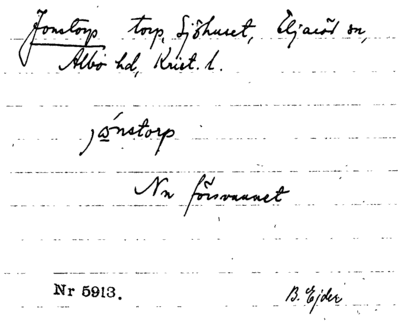 Jonstorp torp, Sjöhuset, Eljaröd sn,
Albo hd, Krist. l.
jo̱nstorp
Nn försvunnet
Nr 5913.
B. Ejder